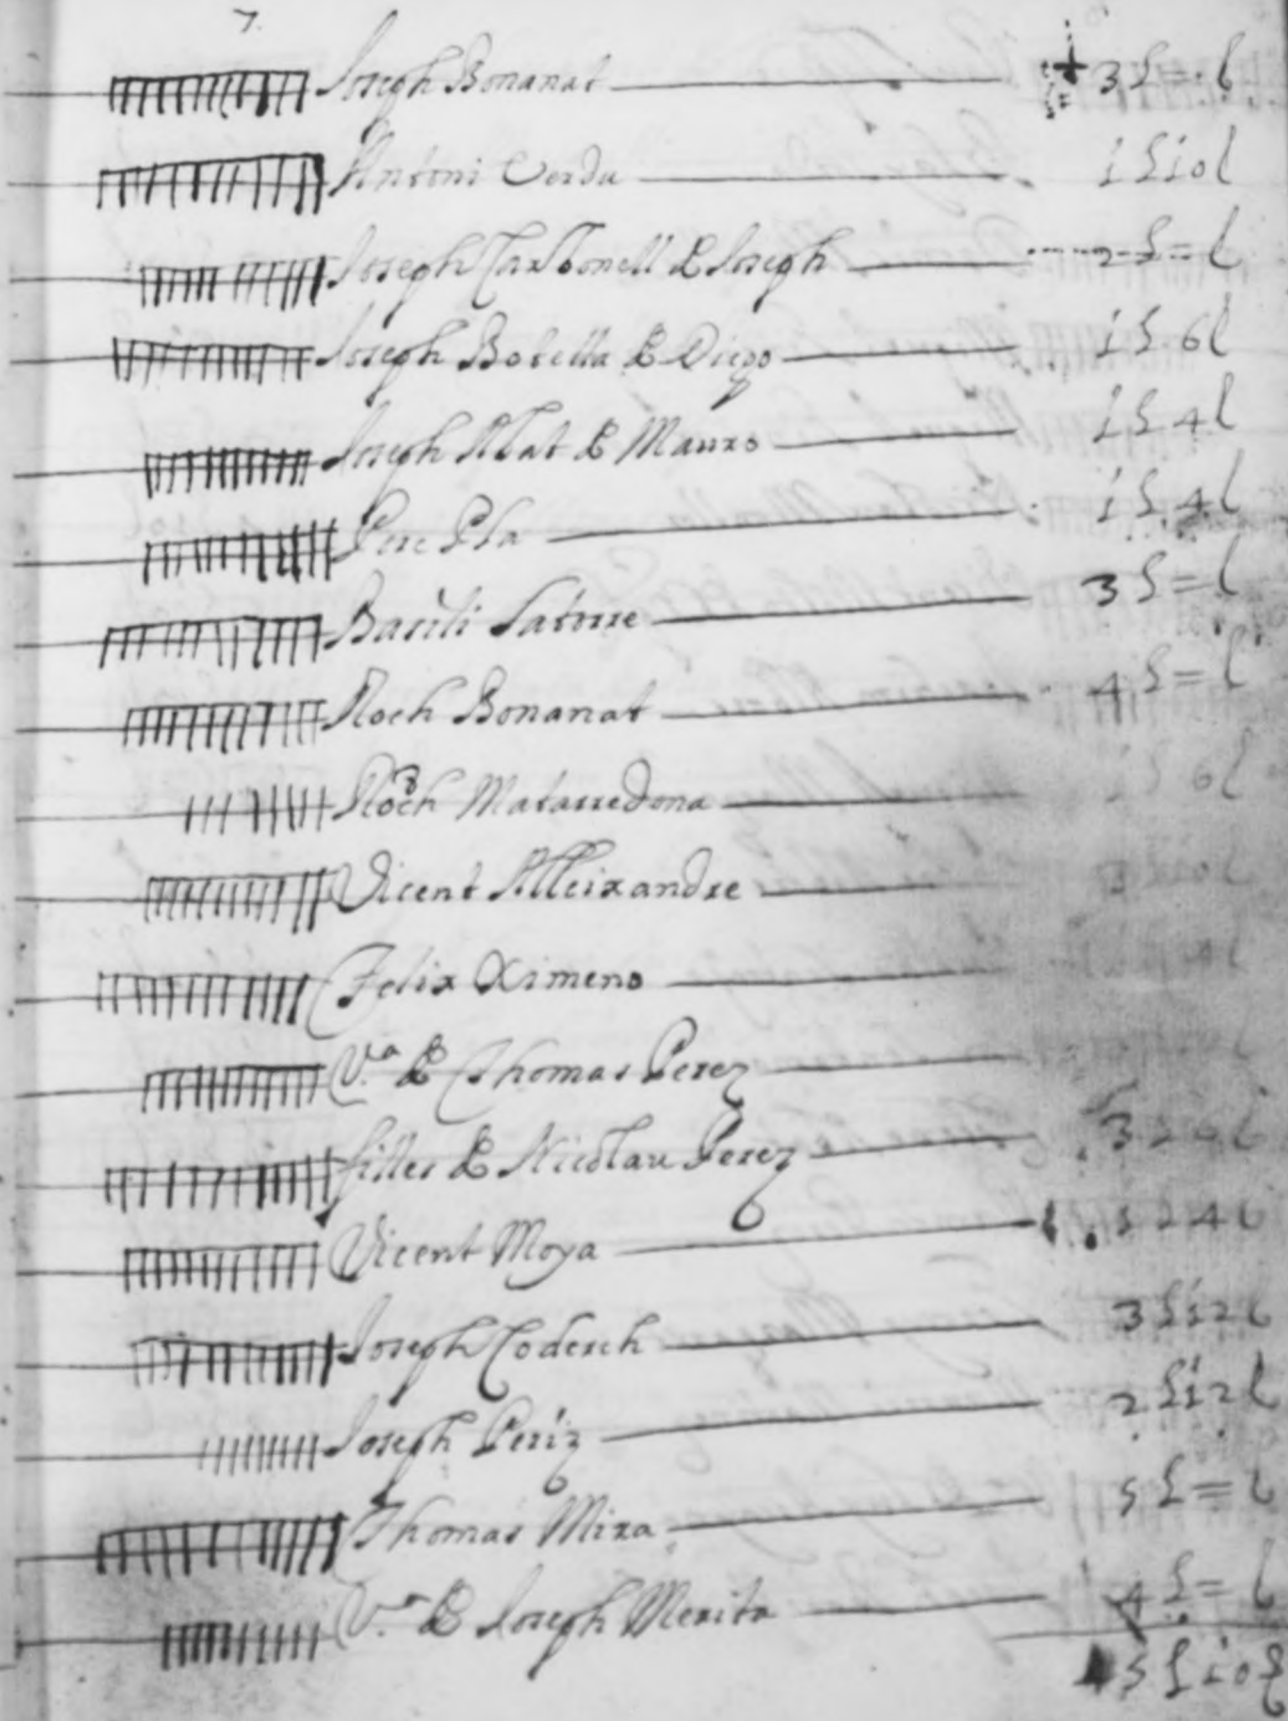 7.
Joseph Bonanat 3 S = l
Antoni Verdu 1 S 10 l
Joseph Carbonell de Joseph 2 S = l
Joseph Botella de Diego 1 S 6 l
Joseph Abat de Mauro 1 S 4 l
Pere Pla 1 S 4 l
Basili Satorre 3 S = l
Roch Bonanat 4 S = l
Roch Matarredona S 6 l
Vicent Alleixandre
Felix Ximeno
V.ª de Thomas Perez
filles de Nicolau Perez
Vicent Moya
Joseph Coderch 3 S 12 l
Joseph Periz 2 S 12 l
Thomas Mira 5 S = l
V.ª de Joseph Merita 4 S = l
45 S 10 S